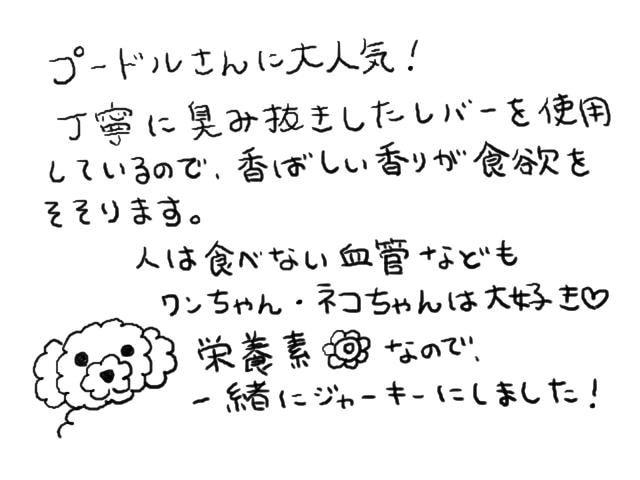 プードルさんに大人気!
丁寧に臭み抜きしたレバーを使用
しているので、香ばしい香りが食欲を
そそります。
人は食べない血管なども
ワンちゃん・ネコちゃんは大好き♡
栄養素なので、
一緒にジャーキーにしました!